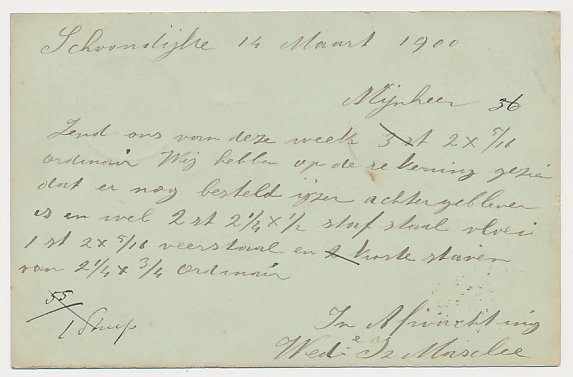 Schoondijke 14 Maart 1900
Mijnheer 56
Zend ons van deze week 3 st 2 x 5/16
ordinair Wij hebben op de rekening gezien
dat er nog besteld ijzer achtergebleven
is en wel 2 st 2 1/4 x 1/2 staf staal vloei
1 st 2 x 5/16 veerstaal en 2 korte staven
van 2 1/4 x 3/4 ordinair
55
1
In Afwachting
Wed.e Is Masclee